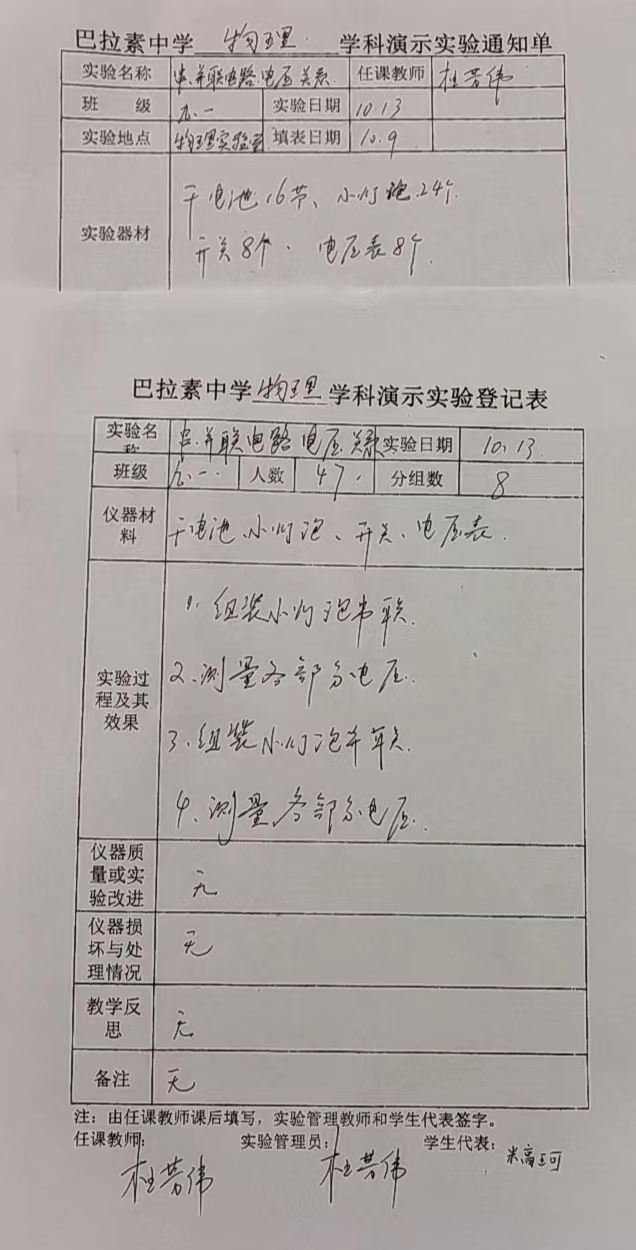 巴拉素中学 物理 学科演示实验通知单
实验名称 串.并联电路.电压关系 任课教师 杜芳伟
班 级 九.一 实验日期 10.13
实验地点 物理实验室 填表日期 10.9
实验器材
干电池16节、小灯泡24个.
开关8个. 电压表8个.
巴拉素中学物理学科演示实验登记表
实验名称 串.并联电路电压关系 实验日期 10.13.
班级 九.一. 人数 47. 分组数 8
仪器材料
干电池.小灯泡、开关、电压表.
实验过程及其效果
1. 组装小灯泡串联.
2.测量各部分电压.
3.组装小灯泡并联.
4.测量各部分电压.
仪器质量或实验改进 无
仪器损坏与处理情况 无
教学反思 无
备注 无
注：由任课教师课后填写，实验管理教师和学生代表签字。
任课教师: 实验管理员: 学生代表:
杜芳伟 杜芳伟 米高珂